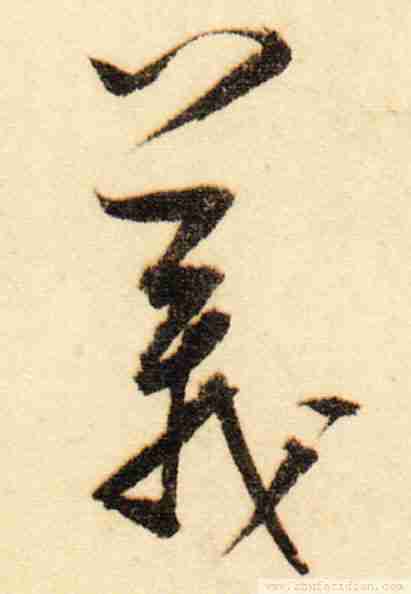 義
www.shufazidian.com